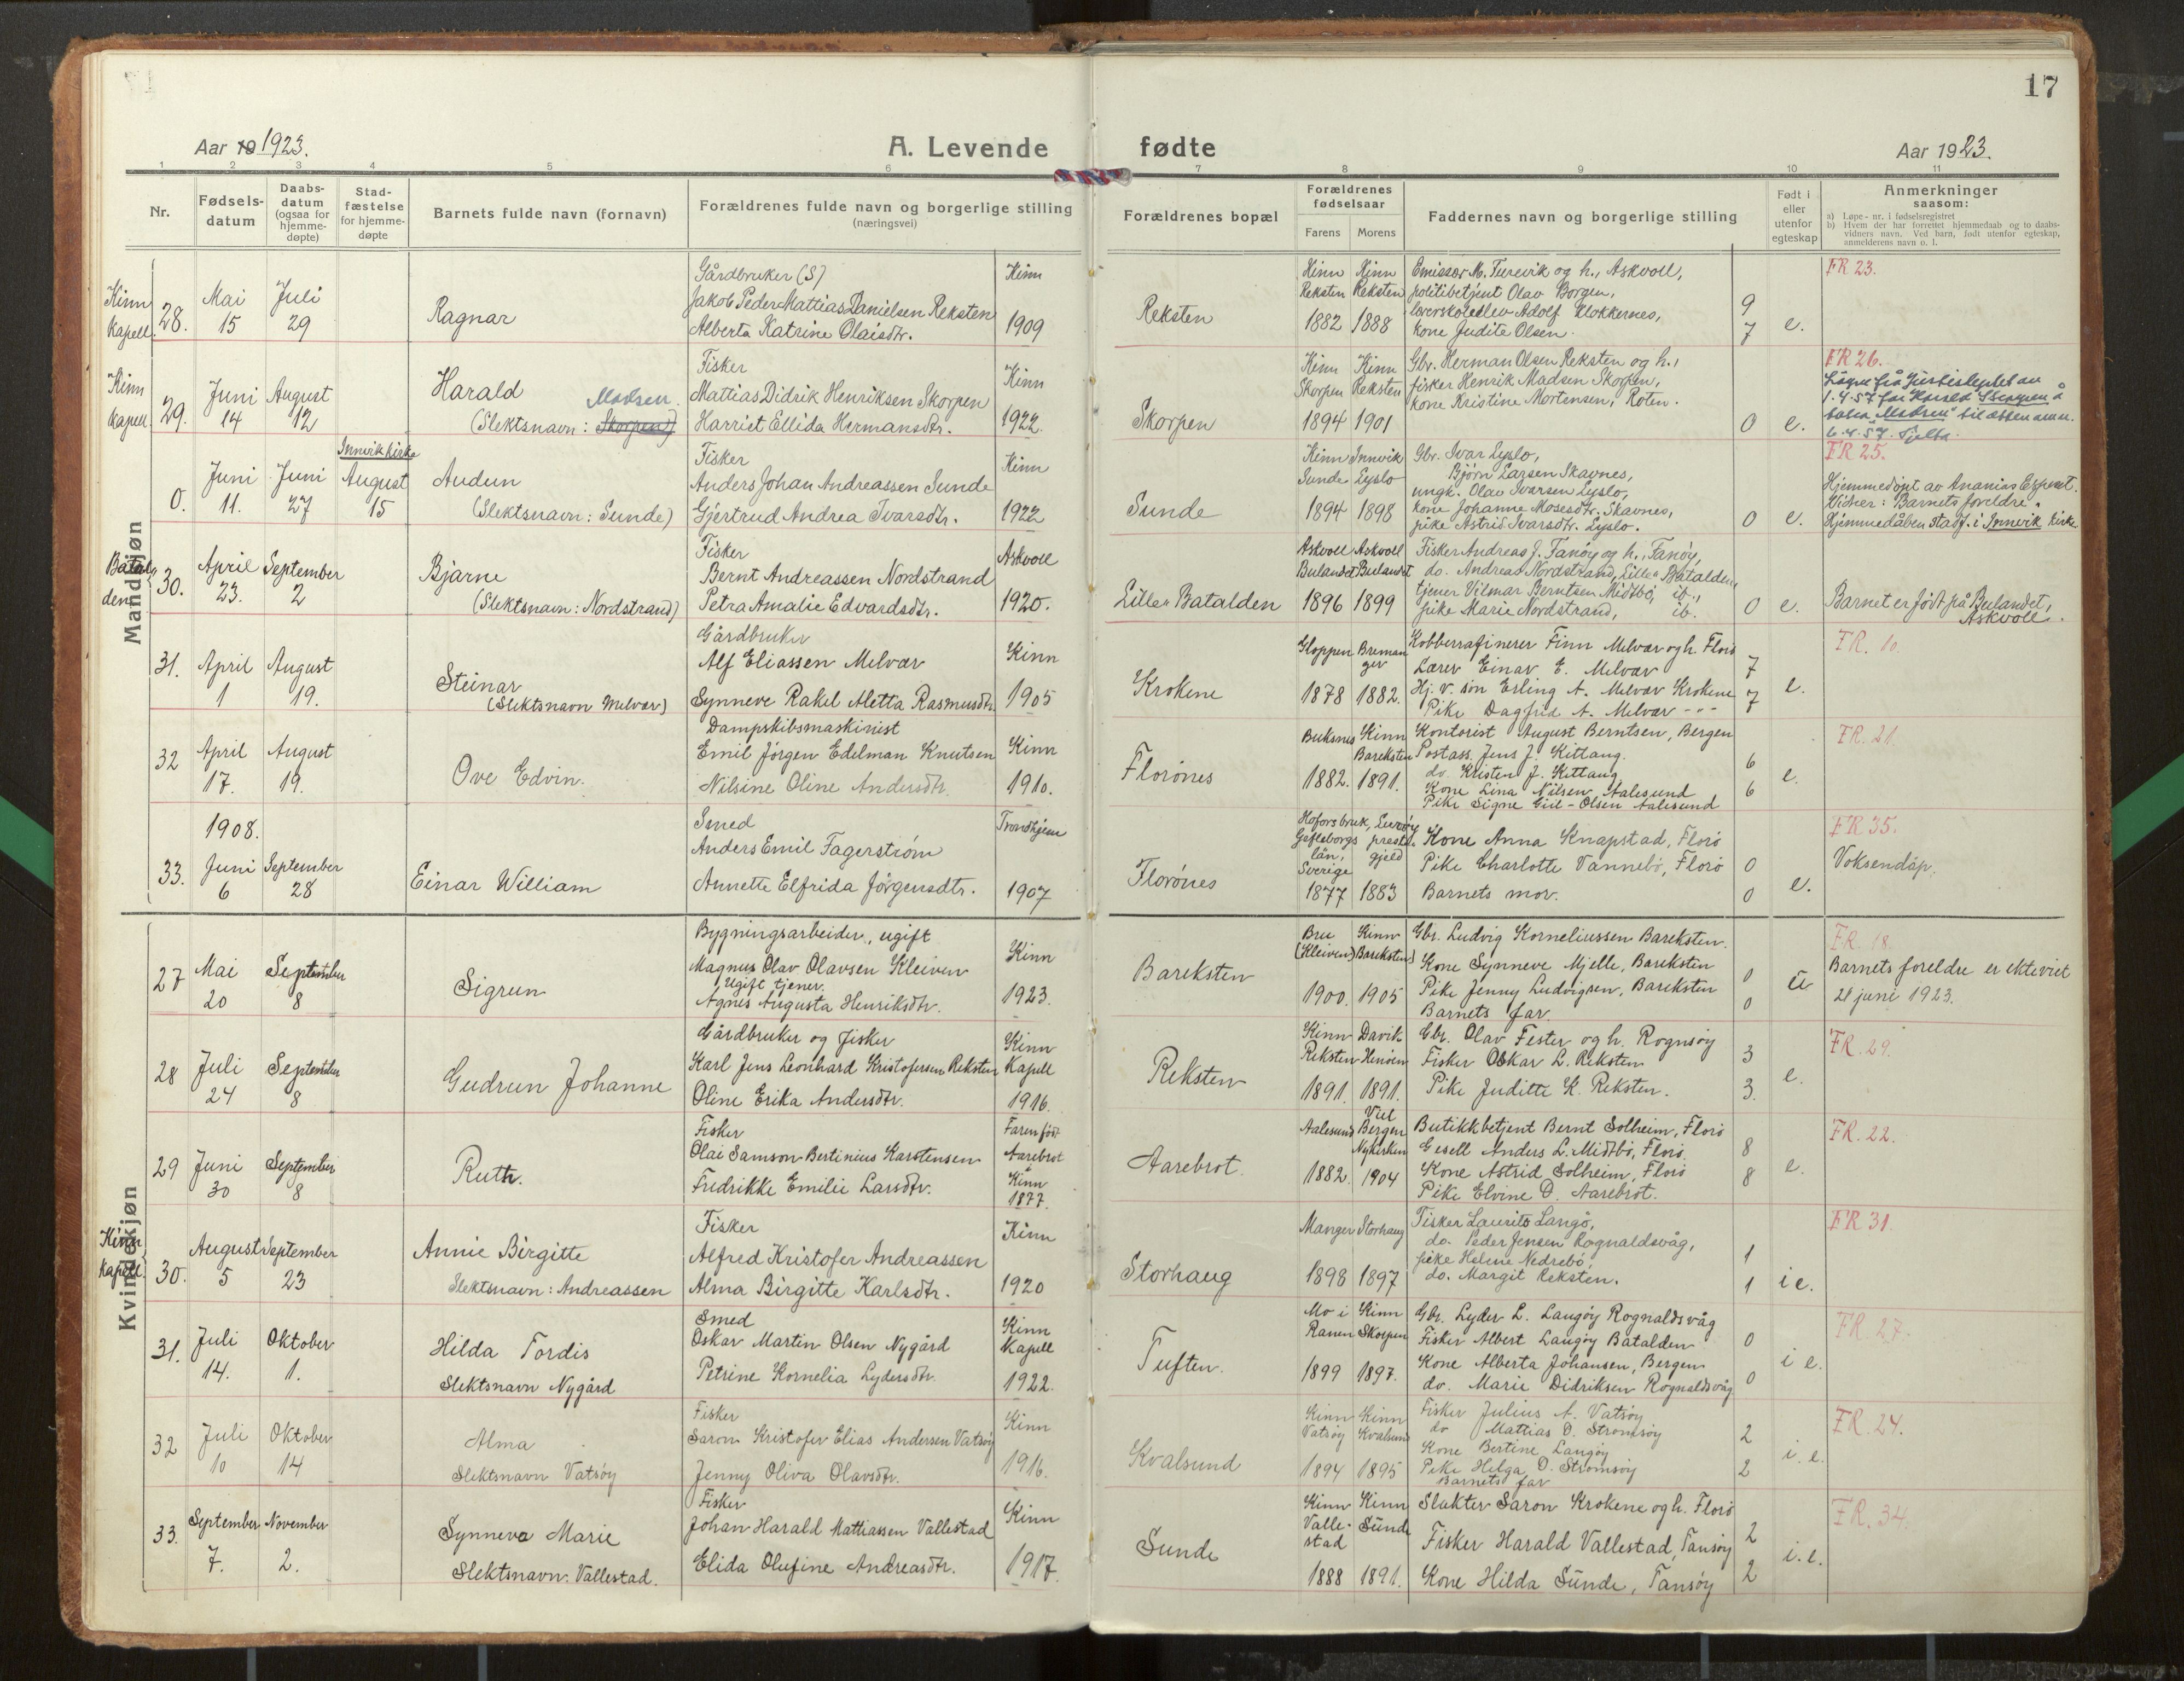 17
Aar 19 1923.
A. Levende fødte
Aar 1923.
1 2 3 4 5 6 7 8 9 10 11
Nr.
Fødselsdatum
Daabsdatum (ogsaa for hjemmedøpte)
Stadfæstelse for hjemmedøpte
Barnets fulde navn (fornavn)
Forældrenes fulde navn og borgerlige stilling
(næringsvei)
Forældrenes bopæl
Forældrenes fødselsaar
Farens Morens
Faddernes navn og borgerlige stilling
Født i eller utenfor egteskap
Anmerkninger
saasom:
a) Løpe-nr. i fødselsregistret
b) Hvem der har forrettet hjemmedaab og to daabsvidners navn. Ved barn, født utenfor egteskap, anmelderens navn o. l.
Mandkjøn
Kinn Kapell. 28.
Mai 15
Juli 29
Ragnar
Gårdbruker (S)
Jakob Peder Mattias Danielsen Reksten
Alberta Katrine Olaisdtr.
Kinn 1909
Reksten
Kinn Reksten 1882
Kinn Reksten 1888
Emissær M. Furevik og h., Askvoll,
politibetjent Olav Borgen,
lærerskoleelev Adolf Klokkernes,
kone Judite Olsen.
9
7
e.
FR 23.
Kinn Kapell. 29.
Juni 14
August 12
Harald
(Slektsnavn: Skorpen) Madsen.
Fisker
Mattias Didrik Henriksen Skorpen
Harriet Ellida Hermansdtr.
Kinn 1922.
Skorpen
Kinn Skorpen 1894
Kinn Reksten 1901
Gbr. Herman Olsen Reksten og h.,
fisker Henrik Madsen Skorpen,
kone Kristine Mortensen, Roten.
0
e.
FR 26.
1.4.57 for Harald Skorpen å
Madsen til etternamn.
0.
Juni 11.
Juni 27
Innvik kirke
August 15
Audun
(Slektsnavn: Sunde)
Fisker
Anders Johan Andreassen Sunde
Gjertrud Andrea Ivarsdtr.
Kinn 1922
Sunde
Kinn Sunde 1894
Innvik Lyslo 1898
Gbr. Ivar Lyslo,
Bjørn Larsen Skavnes,
ungk. Olav Ivarsen Lyslo,
kone Johanne Mosesdtr. Skavnes,
pike Astrid Ivarsdtr. Lyslo.
0
e.
FR 25.
Hjemmedøpt av Ananias
Vidner: Barnets foreldre.
Hjemmedåben stadf. i Innvik kirke
Batalden 30.
April 23.
September 2
Bjarne
(Slektsnavn: Nordstrand)
Fisker
Bernt Andreassen Nordstrand
Petra Amalie Edvardsdtr.
Askvoll 1920.
Lille Batalden
Askvoll Bulandet 1896
Askvoll Bulandet 1899
Fisker Andreas J. Fanøy og h., Fanøy,
do. Andreas Nordstrand, Lille Batalden,
tjener Vilmar Berntsen Midtbö, ib.,
pike Marie Nordstrand, ib.
0
e.
Barnet er født på Bulandet,
Askvoll.
31.
April 1
August 19.
Steinar
(Slektsnavn Melvær)
Gårdbruker
Alf Eliassen Melvær
Synneve Rakel Aletta Rasmusdtr.
Kinn 1905
Krokene
Gloppen 1878
Bremanger 1882.
Kobberrafinerer Finn Melvær og h. Florö
Lærer Einar E. Melvær
Hj. v. søn Erling A. Melvær Krokene
Pike Dagfrid A. Melvær -"-
7
7
e.
FR. 10.
32
April 17.
August 19.
Ove Edvin.
Dampskibsmaskinist
Emil Jörgen Edelman Knutsen
Nilsine Oline Andersdtr.
Kinn 1910.
Florönes
Buksnes 1882.
Kinn Bareksten 1891.
Kontorist August Berntsen, Bergen
Postass. Jens J. Kittang.
do. Kristen J. Kittang
Kone Lina Nilsen, Aalesund
Pike Signe Giil-Olsen Aalesund
6
6
e.
FR. 21.
33.
1908.
Juni 6
September 28
Einar William
Smed
Anders Emil Fagerström
Annette Elfrida Jörgensdtr.
Trondhjem 1907
Florönes
Hofors bruk, Gefleborgs län, Sverige 1877
Lurøy prestegjeld 1883
Kone Anna Knapstad, Florö
Pike Charlotte Vannebö, Florö
Barnets mor.
0
0
e.
FR 35.
Voksendåp.
Kvindekjøn
27
Mai 20
September 8
Sigrun
Bygningsarbeider, ugift
Magnus Olav Olavsen Kleiven
Ugift tjener.
Agnes Augusta Henriksdtr.
Kinn 1923.
Bareksten
Bru (Kleiven) 1900.
Kinn (Bareksten) 1905
Gbr. Ludvig Korneliussen Bareksten.
Kone Synneve Mjelle, Bareksten
Pike Jenny Ludvigsen, Bareksten
Barnets far.
0
0
u
FR. 18
Barnets foreldre er ekteviet
21 juni 1923.
28
Juli 24
September 8
Gudrun Johanne
Gårdbruker og fisker
Karl Jens Leonhard Kristofersen Reksten
Oline Erika Andersdtr.
Kinn Kapell 1916.
Reksten
Kinn Reksten 1891.
Davik Hennöen 1891.
Gbr. Olav Fester og h. Rognsöy
Fisker Oskar L. Reksten
Pike Juditte K. Reksten.
3
3.
e.
FR. 29.
29
Juni 30
September 8
Ruth.
Fisker
Olai Samson Bertinius Karstensen
Fredrikke Emilie Larsdtr.
Faren født Aarebrot Kinn 1877.
Aarebrot.
Aalesund 1882.
Bergen Nykirken 1904
Butikkbetjent Bernt Solheim, Florö
Gesell Anders L. Midtbö, Florö.
Kone Astrid Solheim, Florö
Pike Elvine D. Aarebrot.
8
8
e.
FR. 22.
Kinn Kapell. 30.
August 5
September 23
Annie Birgitte
Slektsnavn: Andreassen
Fisker
Alfred Kristofer Andreassen
Alma Birgitte Karlsdtr.
Kinn 1920
Storhaug
Manger 1898
Storhaug 1897
Fisker Laurits Langö,
do. Peder Jensen Rognaldsvåg,
pike Helene Nedrebö,
do. Margit Reksten.
1
1
i e.
FR 31.
31.
Juli 14.
Oktober 1.
Hilda Tordis
Slektsnavn Nygård
Smed
Oskar Martin Olsen Nygård
Petrine Kornelia Lydersdtr.
Kinn Kapell 1922.
Tuften.
Mo i Ranen 1899
Kinn Skorpen 1897.
Gbr. Lyder L. Langöy Rognaldsvåg
Fisker Albert Langöy Batalden
Kone Alberta Johansen, Bergen
do. Marie Didriksen Rognaldsvåg
0
0
i e.
FR 27.
32
Juli 10
Oktober 14
Alma
Slektsnavn Vatsöy
Fisker
Saron Kristofer Elias Andersen Vatsöy
Jenny Oliva Olavsdtr.
Kinn 1916.
Kvalsund
Kinn Vatsöy 1894
Kinn Kvalsund 1895
Fisker Julius A. Vatsöy
do Mattias D. Strömsöy
Kone Bertine Langöy
Pike Helga D. Strömsöy
Barnets far
2
2
i. e.
FR. 24.
33.
September 7.
November 2.
Synneva Marie
Slektsnavn: Vallestad.
Fisker
Johan Harald Mattiassen Vallestad
Elida Olufine Andreasdtr.
Kinn 1917.
Sunde
Kinn Vallestad 1888
Kinn Sunde 1891.
Slakter Saron Krokene og h. Florö
Fisker Harald Vallestad, Tansöy
Kone Hilda Sunde, Tansöy
2
2
i. e.
FR. 34.